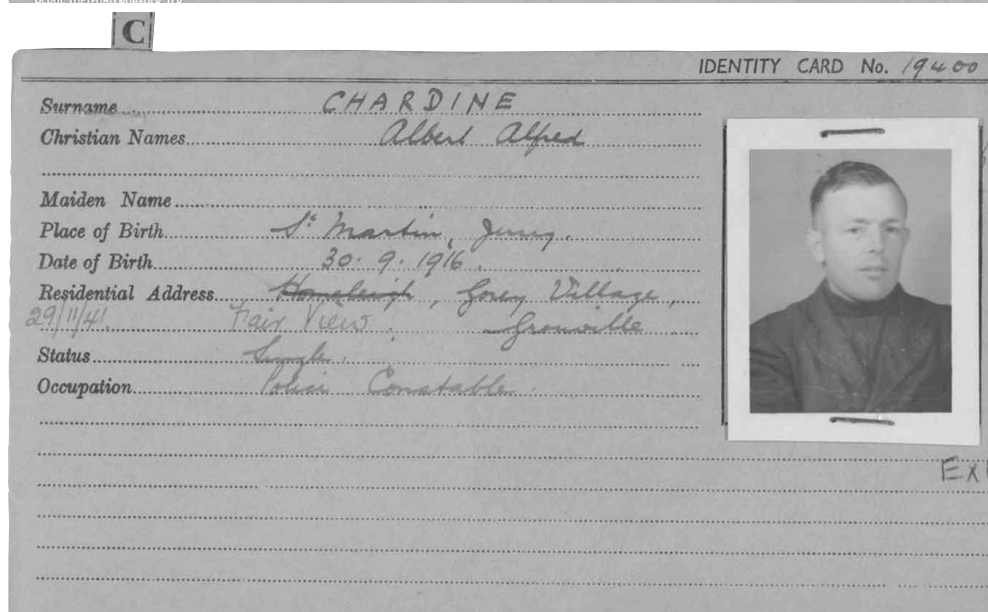 C
IDENTITY CARD No. 19400
Surname CHARDINE
Christian Names Albert Alfred
Maiden Name
Place of Birth St Martin, Jersey.
Date of Birth 30.9.1916.
Residential Address Homeleigh, Gorey Village,
29/11/41. Fair View. Grouville
Status Single.
Occupation Police Constable.